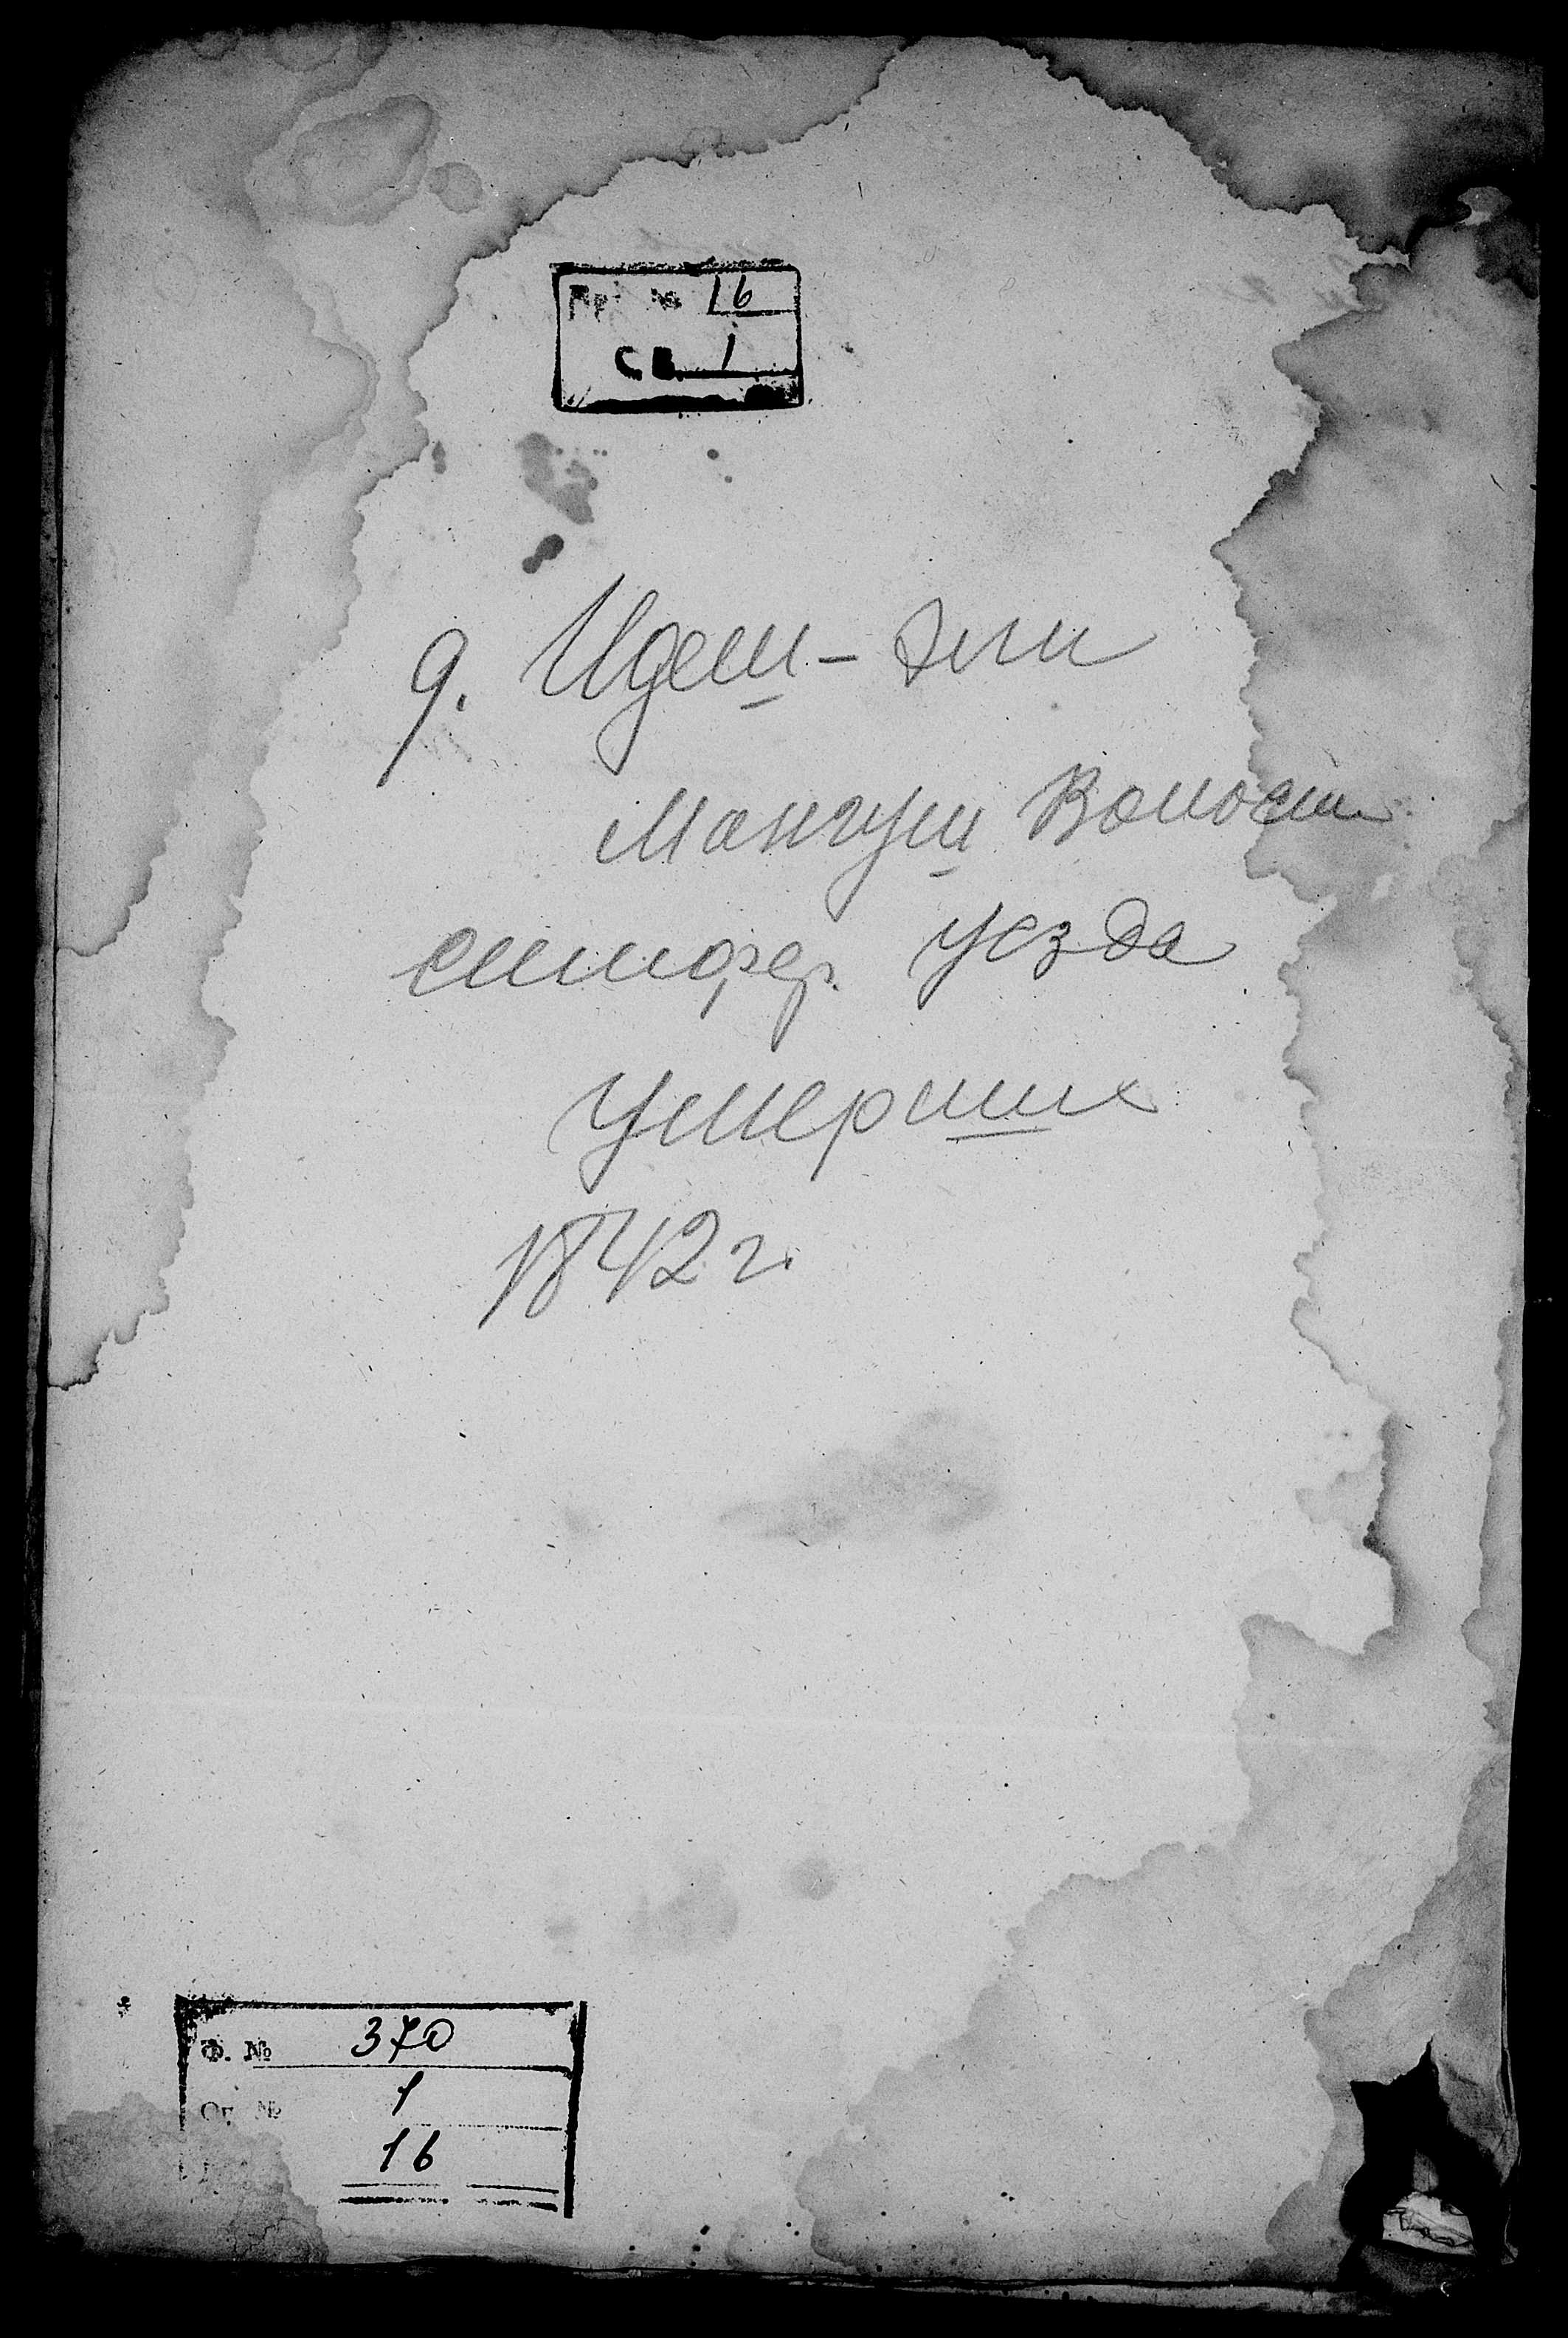 Пр. № 16
СВ. 1
д. Идеш-эли
Мангуш Волости
симфер. уезда
умерших
1842 г.
Ф. № 370
Оп. № 1
16